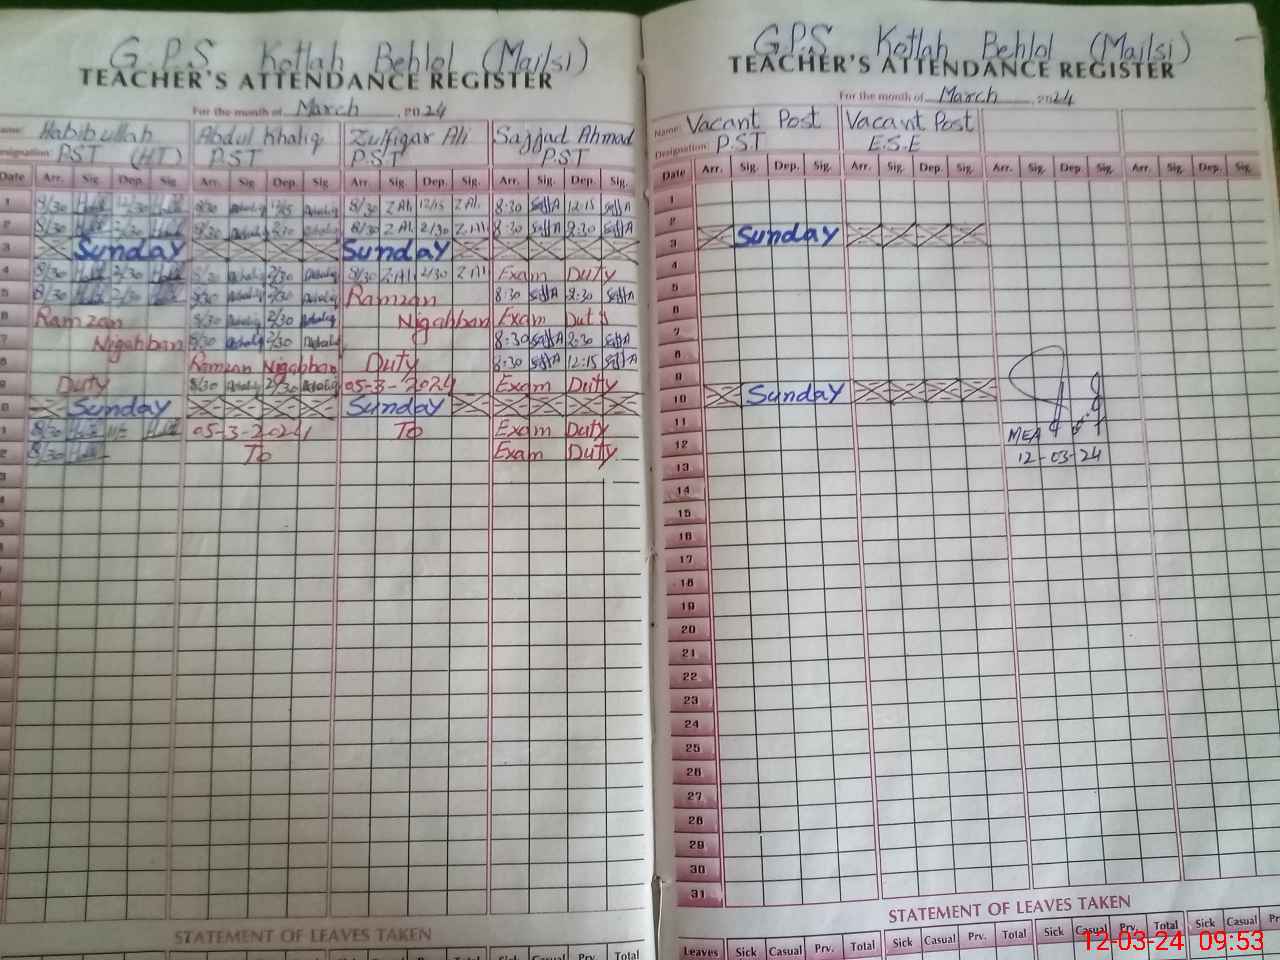 G.P.S Kotlah Behlol (Mailsi)
TEACHER'S ATTENDANCE REGISTER
For the month of March, 2024
Habibullah Abdul Khaliq Zulfiqar Ali Sajjad Ahmad
PST (HT) PST PST PST
Date Arr. Sig. Dep. Sig. Arr. Sig. Dep. Sig. Arr. Sig. Dep. Sig. Arr. Sig. Dep. Sig.
1 8/30 8/30 8/30 Z Ali 12/15 Z Ali 8:30 12:15
2 8/30 8/30 2/30 8/30 Z Ali 2/30 Z Ali 8:30 2:30
3 Sunday Sunday
4 8/30 2/30 8/30 2/30 8/30 Z Ali 2/30 Z Ali Exam Duty
5 8/30 2/30 8/30 2/30 Ramzan 8:30 2:30
Ramzan 8/30 2/30 Nigahban Exam Duty
7 Nigahban 8/30 2/30 8:30 2:30
Ramzan Nigahban Duty 8:30 12:15
Duty 8/30 2/30 05-3-2024 Exam Duty
Sunday Sunday
8/30 05-3-2024 To Exam Duty
8/30 To Exam Duty
STATEMENT OF LEAVES TAKEN
Sick Casual Prv. Total
G.P.S Kotlah Behlol (Mailsi)
TEACHER'S ATTENDANCE REGISTER
For the month of March, 2024
Name: Vacant Post Vacant Post
Designation: P.S.T E.S.E
Date Arr. Sig. Dep. Sig. Arr. Sig. Dep. Sig. Arr. Sig. Dep. Sig. Arr. Sig. Dep. Sig.
1
2
3 Sunday
4
5
6
7
8
9
10 Sunday
11
12 MEA
13 12-03-24
14
15
16
17
18
19
20
21
22
23
24
25
26
27
28
29
30
31
STATEMENT OF LEAVES TAKEN
Leaves Sick Casual Prv. Total Sick Casual Prv. Total Sick Casual Prv. Total Sick Casual Pr
12-03-24 09:53